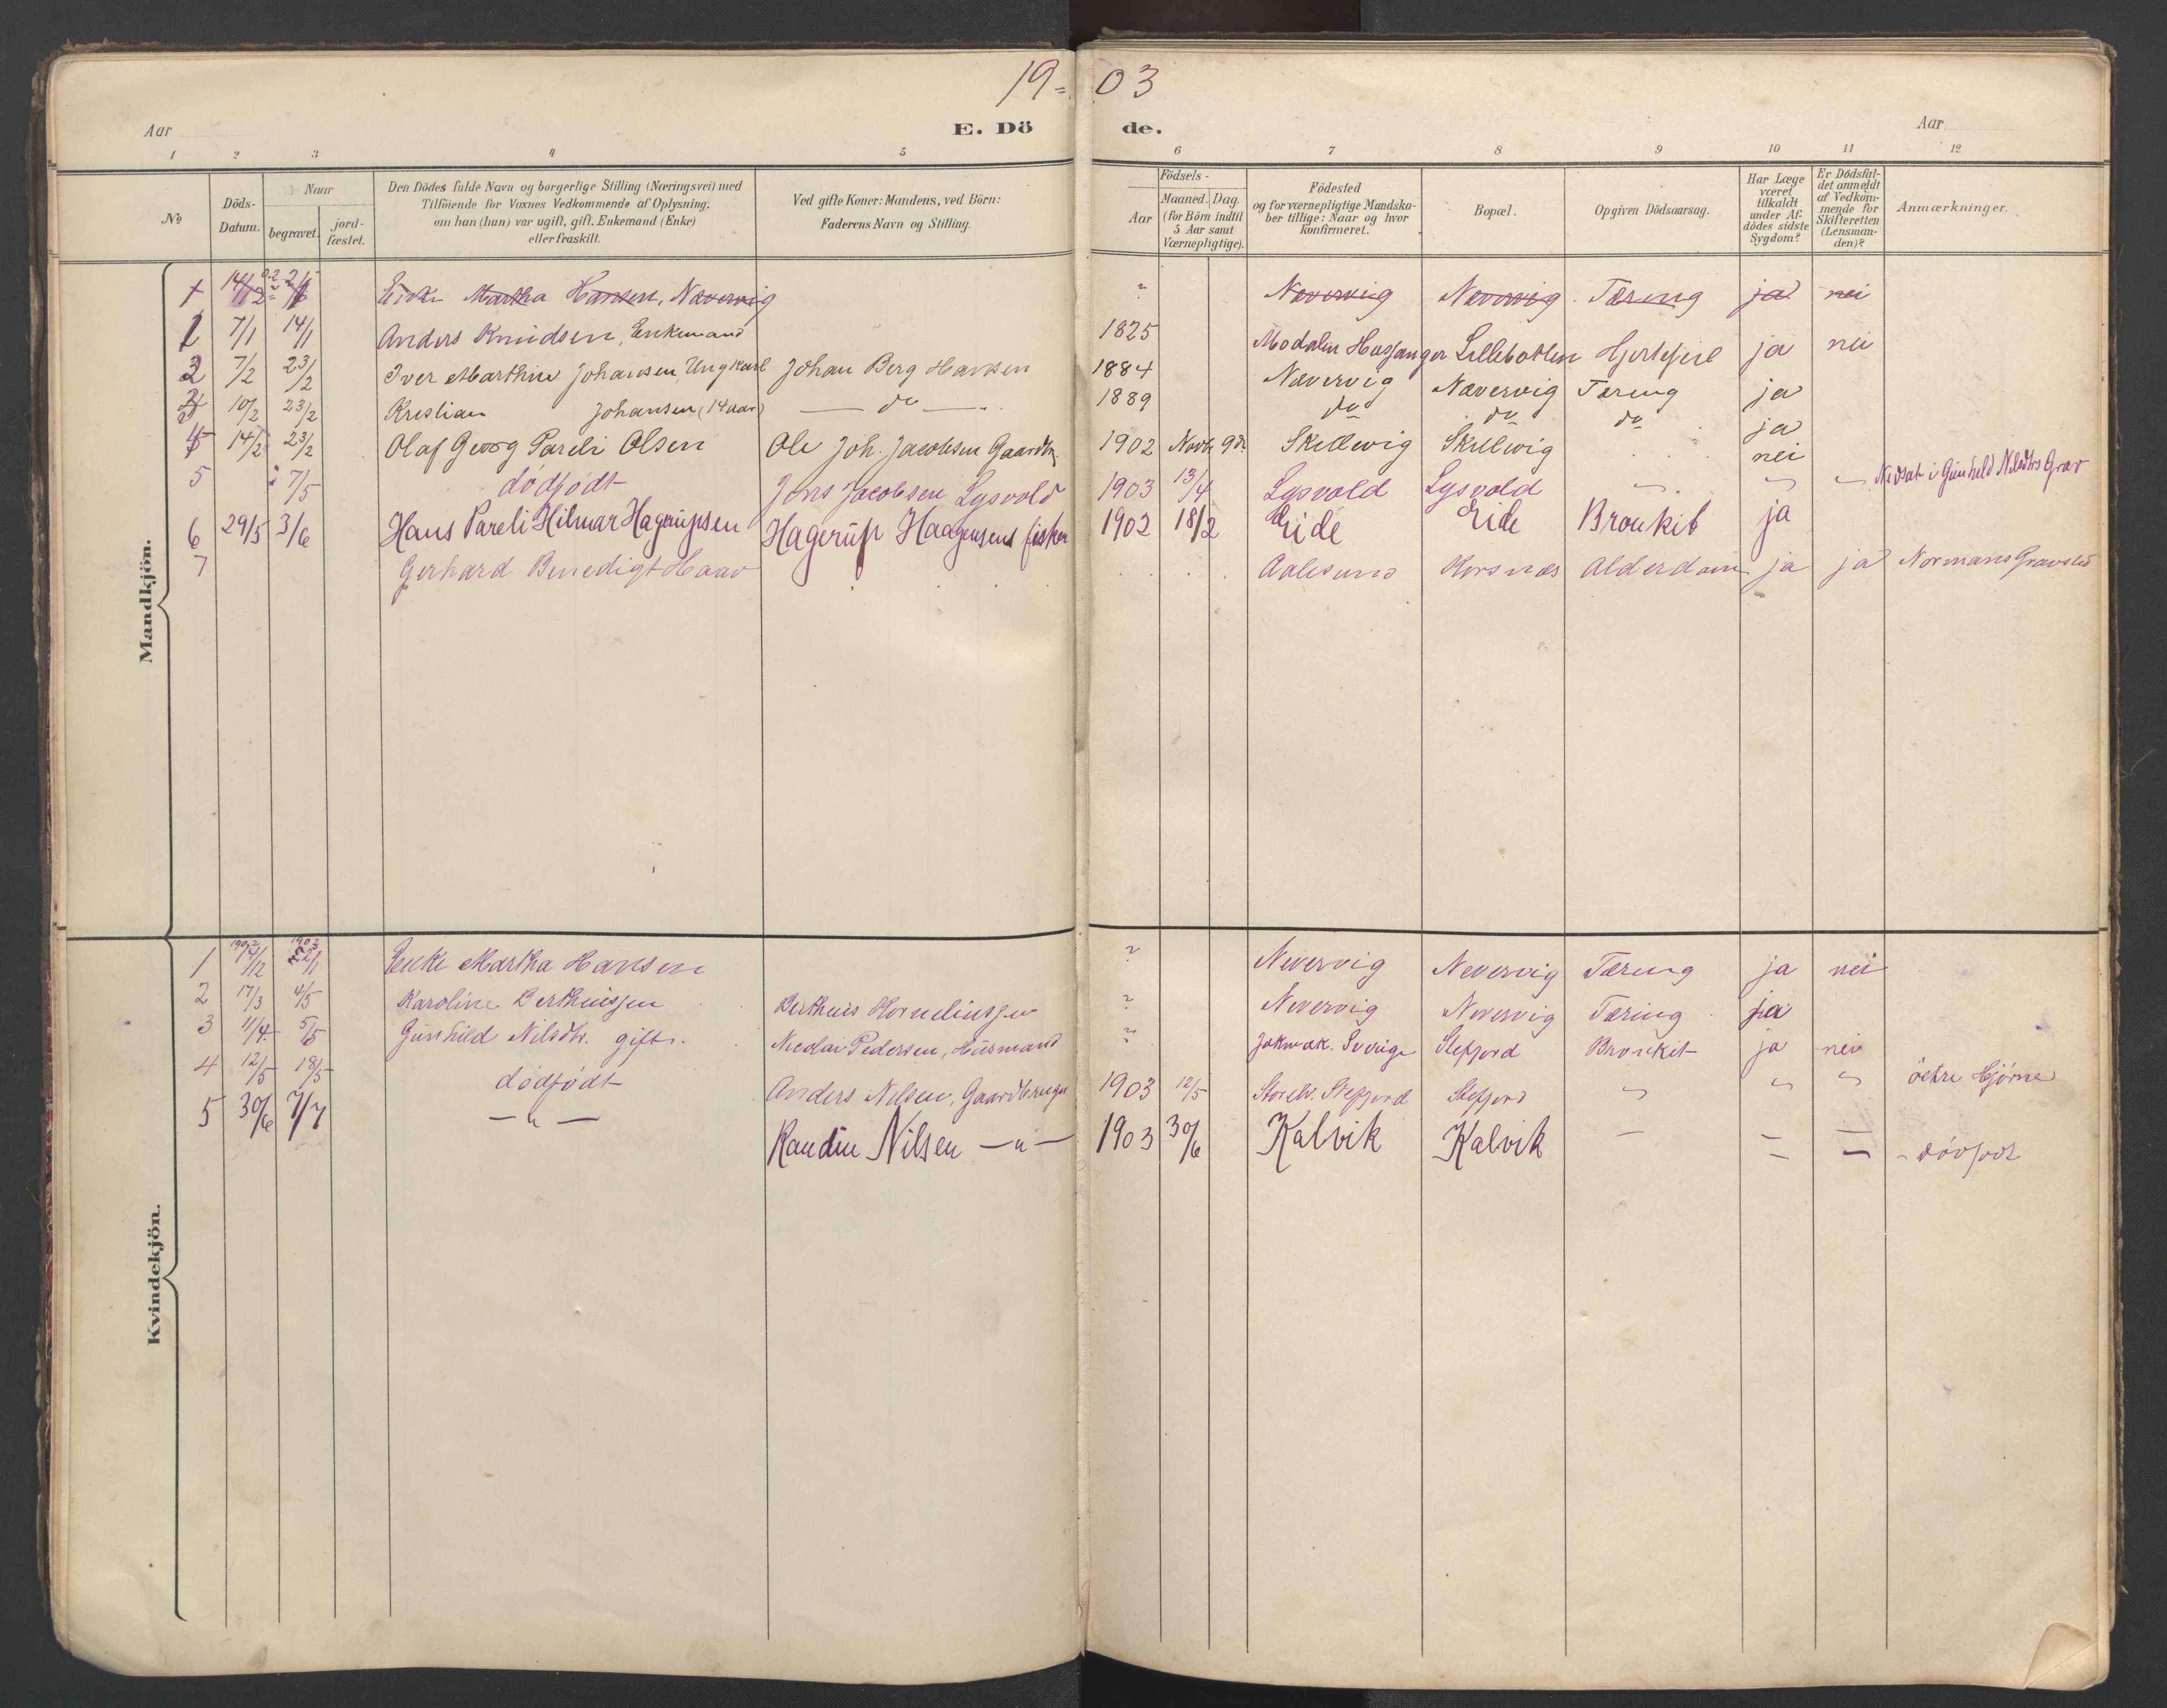 19 = 03
Aar E. Dö de. Aar
1 2 3 4 5 6 7 8 9 10 11 12
No
Döds-Datum.
Naar
begravet.
jord-fæstet.
Den Dödes fulde Navn og borgerlige Stilling (Næringsvei) med
Tilföiende for Voxnes Vedkommende af Oplysning,
om han (hun) var ugift, gift, Enkemand (Enke)
eller fraskilt.
Ved gifte Koner: Mandens, ved Börn:
Faderens Navn og Stilling.
Födsels-
Aar
Maaned. Dag.
(for Börn indtil
5 Aar samt
Værnepligtige).
Födested
og for værnepligtige Mandska-
ber tillige: Naar og hvor
konfirmeret.
Bopæl.
Opgiven Dödsaarsag.
Har Læge
været
tilkaldt
under Af-
dödes sidste
Sygdom?
Er Dödsfal-
det anmeldt
af Vedkom-
mende for
Skifteretten
(Lensman-
den)?
Anmærkninger.
Mandkjön.
1 14/12 Enke Martha Hansen, Nævervig ? Nævervig Nævervig Tæring ja nei
1 7/1 14/1 Anders Knudsen, Enkemand 1825 Modalen Hosanger Lillebotten Hjertefeil ja nei
2 7/2 23/2 Iver Marthin Johansen, Ungkarl Johan Berg Hansen 1884 Nævervig Nævervig Tæring ja
3 10/2 23/2 Kristian Johansen (14 aar) — do — 1889 do do do ja
4 14/2 23/2 Olaf Georg Pareli Olsen Ole Joh. Jacobsen Gaardbr. 1902 Novbr 9de Skillevig Skillevig nei
5 7/5 dödfödt Jens Jacobsen Lysvold 1903 13/4 Lysvold Lysvold " " " Nedsat i Gunhild Nilsdtrs Grav
6 29/5 3/6 Hans Pareli Hilmar Hagerupsen Hagerup Haagensens fisker 1902 18/2 Eide Eide Bronkit ja
7 Gerhard Benedigt Haav Aalesund Korsnæs Alderdom ja ja Normans Gravsted
Kvindekjön.
1 1902 14/12 1903 2/1 Enke Martha Hansen ? Nevervig Nevervig Tæring ja nei
2 17/3 4/5 Karoline Bertheussen Bertheus Korneliussen ? Nevervig Nevervig Tæring ja
3 11/4 5/5 Gunhild Nilsdtr. gift. Nicolai Pedersen, Husmand ? Jokmok. Sverige Stefjord Bronkit ja nei
4 12/5 18/5 dödfödt Anders Nilsen, Gaardbruger 1903 12/5 Storelv. Stefjord Stefjord " " " östre Hjörne
5 30/6 7/7 — " — Randin Nilsen — " — 1903 30/6 Kalvik Kalvik — — — dövfödt